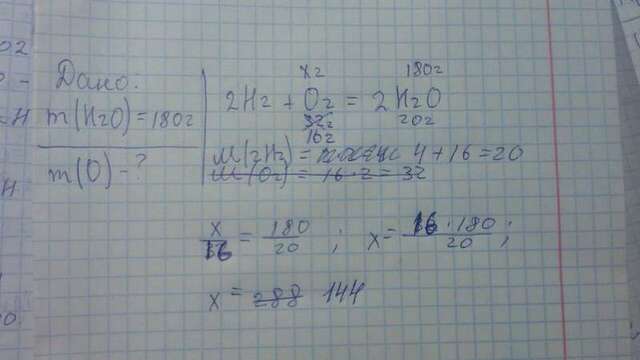 Дано:
m(H2O)=180г
m(O)-?
xг 180г
2H2 + O2 = 2H2O
32г 20г
16г
M(2H2) = 4+16=20
M(O2) = 16·2 = 32
x/16 = 180/20 ; x= 16·180/20 ;
x = 288 144
O2
H
H